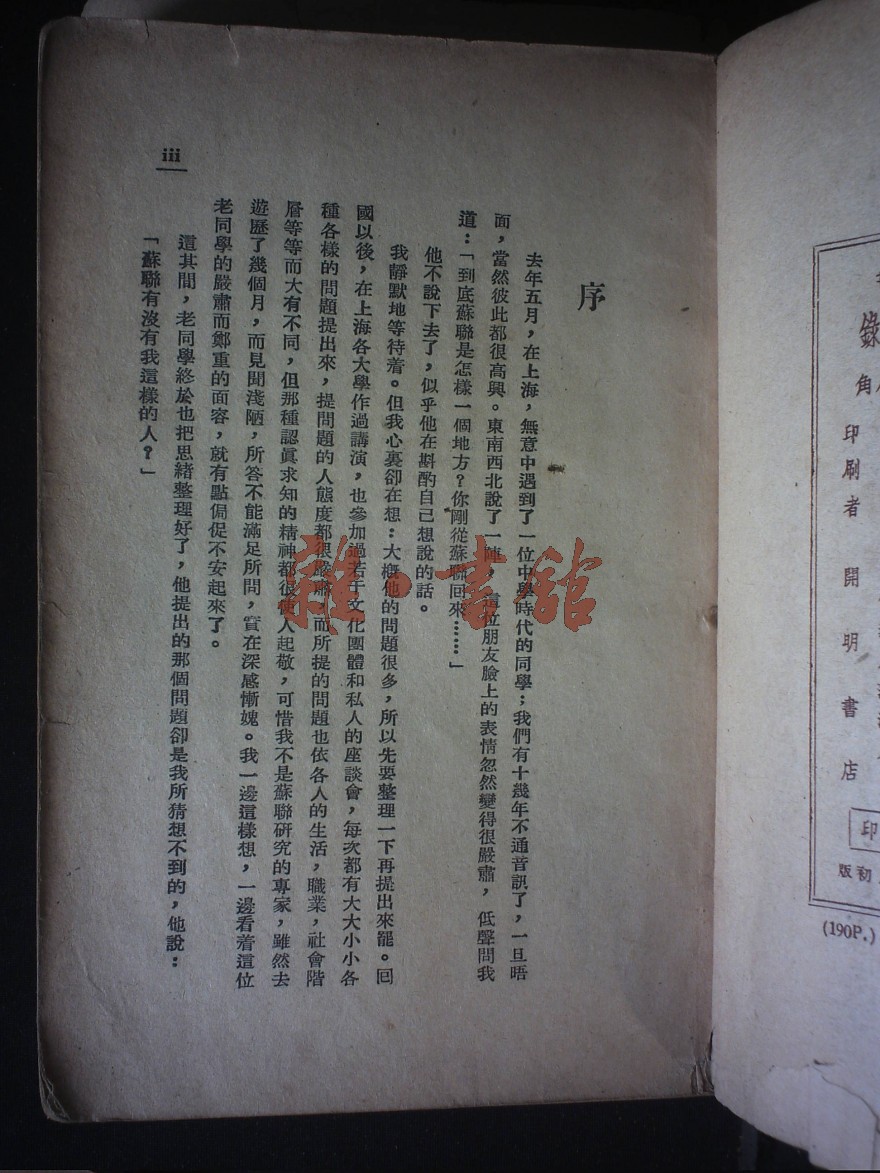 序
去年五月，在上海，無意中遇到了一位中學時代的同學；我們有十幾年不通音訊了，一旦晤
面，當然彼此都很高興。東南西北說了一陣，這位朋友臉上的表情忽然變得很嚴肅，低聲問我
道：「到底蘇聯是怎樣一個地方？你剛從蘇聯回來……」
他不說下去了，似乎他在斟酌自己想說的話。
我靜默地等待着。但我心裏卻在想：大概他的問題很多，所以先要整理一下再提出來罷。回
國以後，在上海各大學作過講演，也參加過若干文化團體和私人的座談會，每次都有大大小小各
種各樣的問題提出來，提問題的人態度都很嚴肅，而所提的問題也依各人的生活，職業，社會階
層等等而大有不同，但那種認眞求知的精神都很使人起敬，可惜我不是蘇聯研究的專家，雖然去
遊歷了幾個月，而見聞淺陋，所答不能滿足所問，實在深感慚媿。我一邊這樣想，一邊看着這位
老同學的嚴肅而鄭重的面容，就有點侷促不安起來了。
這其間，老同學終於也把思緒整理好了，他提出的那個問題卻是我所猜想不到的，他說：
「蘇聯有沒有我這樣的人？」
iii
雜·書館
錄
角
印刷者 開明書店
印
版初
(190P.)